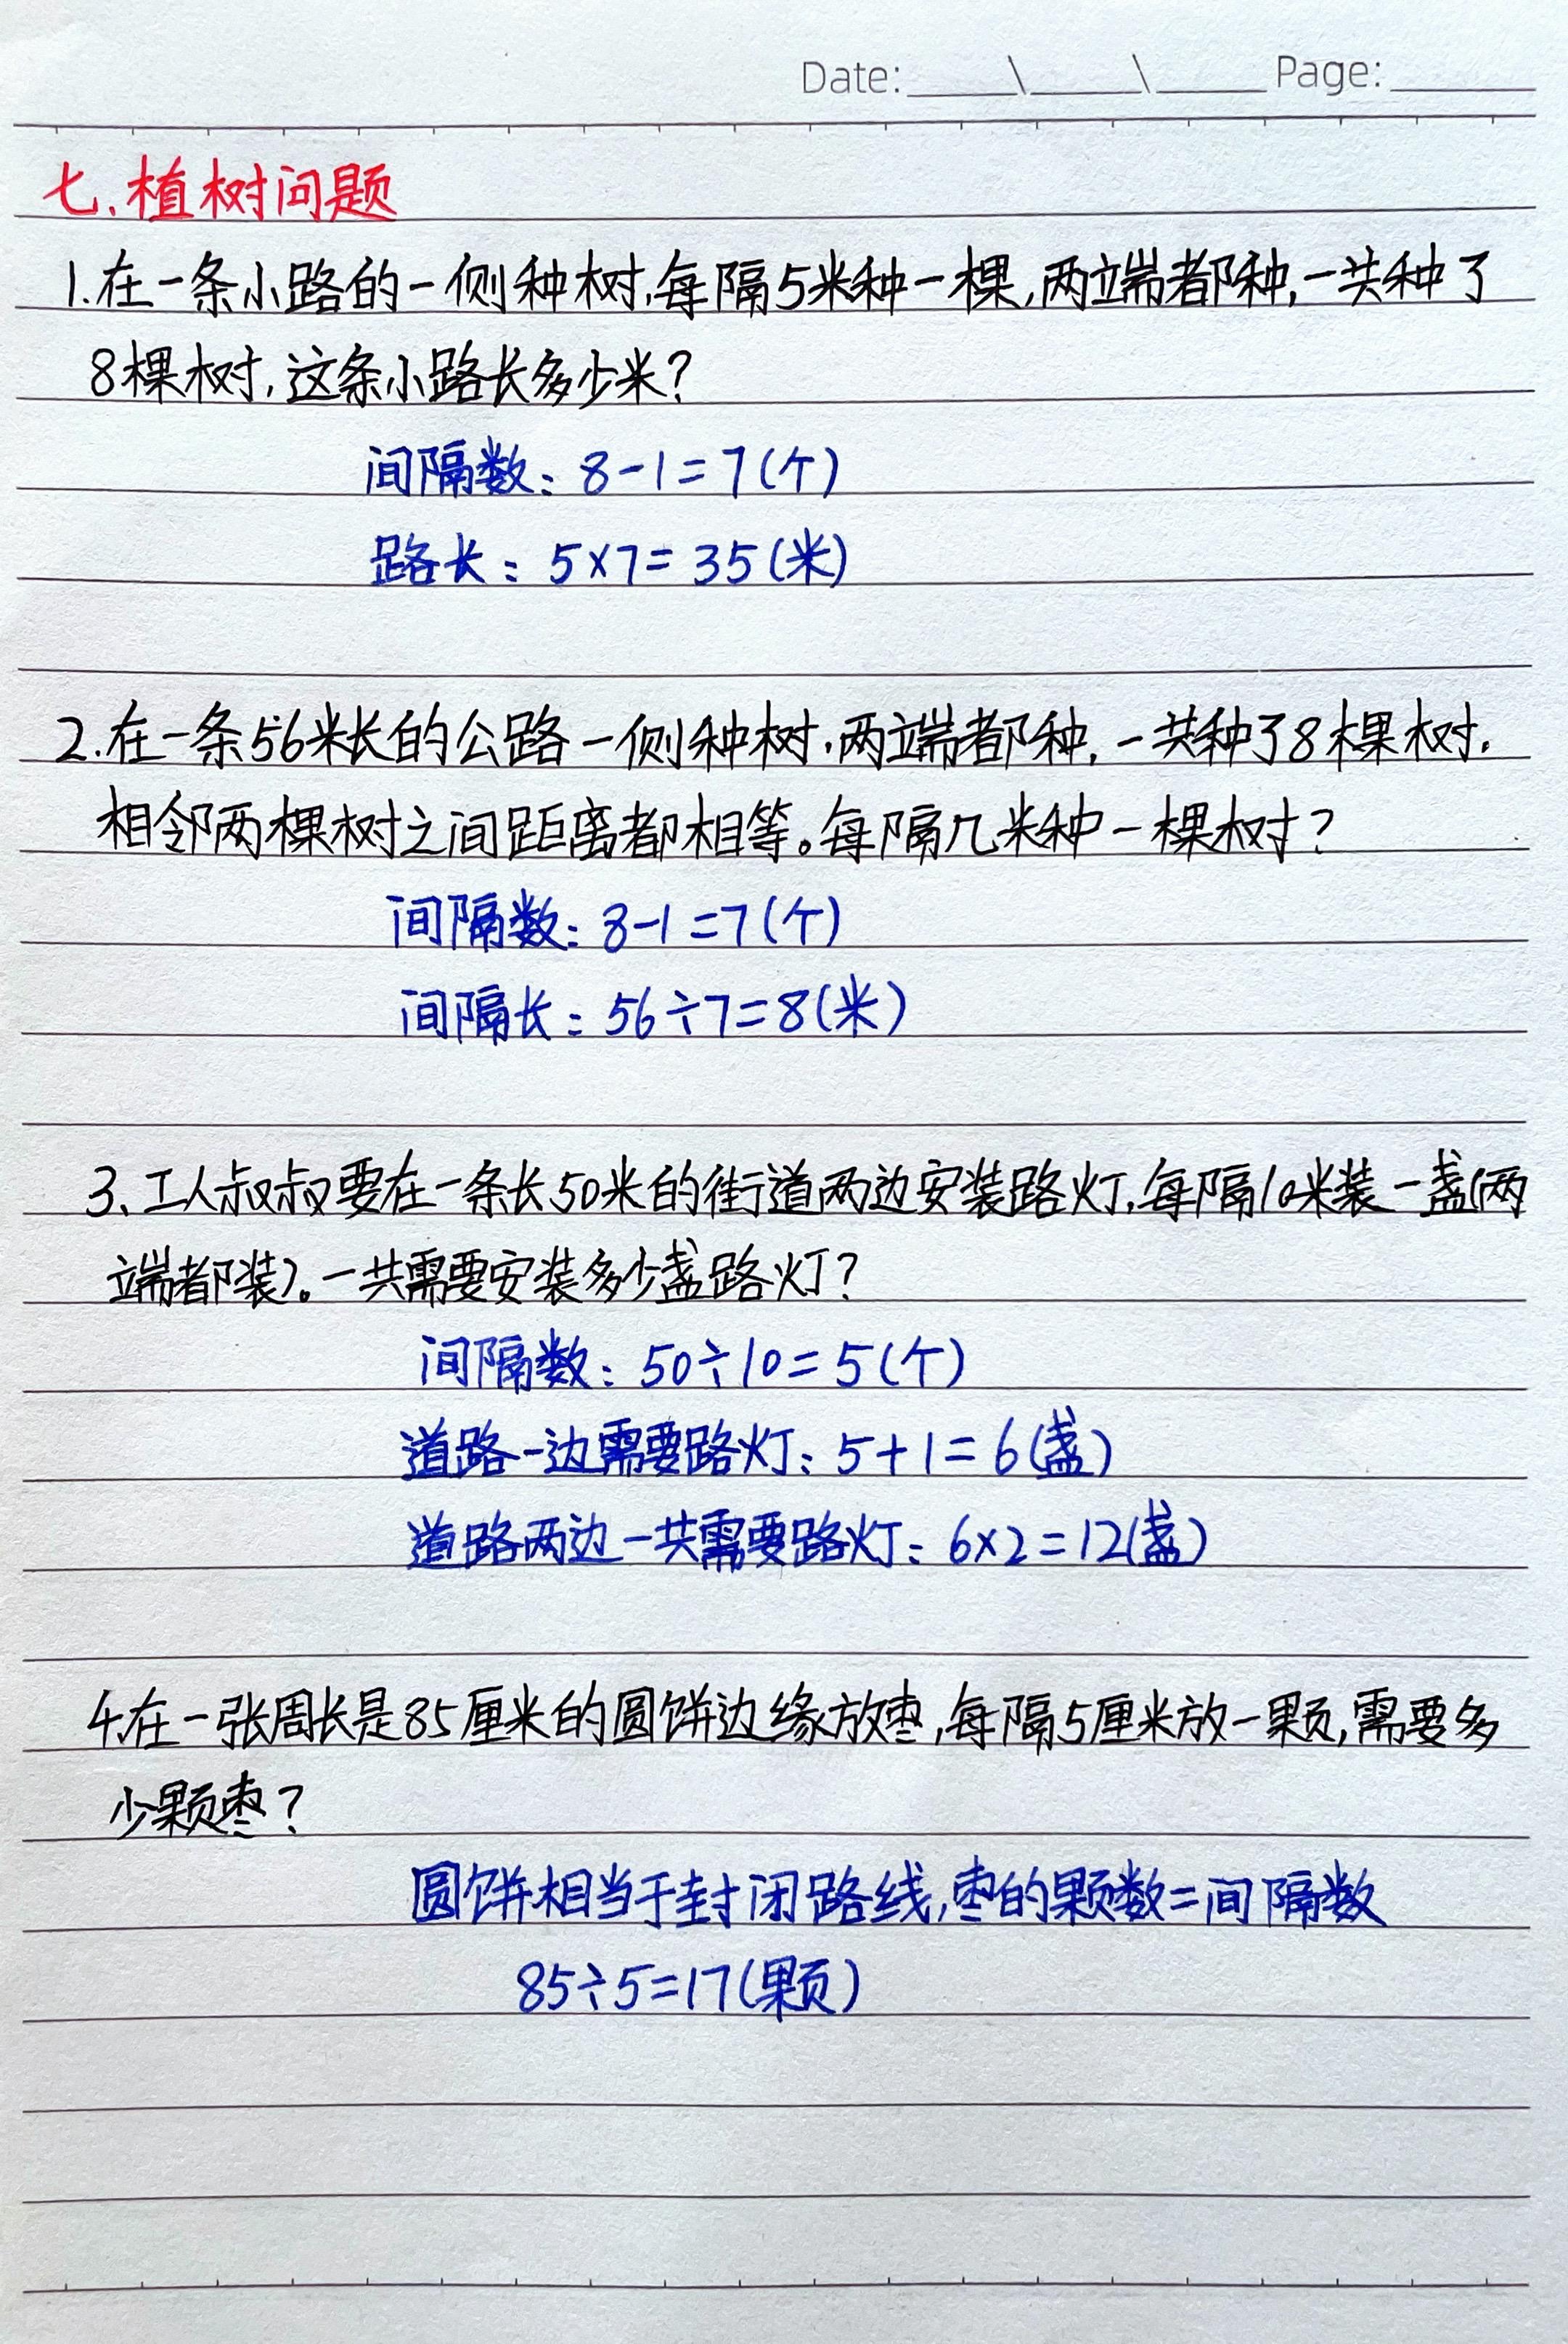 Date: \ \ Page:
七.植树问题
1.在一条小路的一侧种树,每隔5米种一棵,两端都种,一共种了
8棵树,这条小路长多少米?
间隔数:8-1=7(个)
路长:5×7=35(米)
2.在一条56米长的公路一侧种树,两端都种,一共种了8棵树.
相邻两棵树之间距离都相等。每隔几米种一棵树?
间隔数:8-1=7(个)
间隔长:56÷7=8(米)
3、工人叔叔要在一条长50米的街道两边安装路灯,每隔10米装一盏(两
端都装)。一共需要安装多少盏路灯?
间隔数:50÷10=5(个)
道路一边需要路灯:5+1=6(盏)
道路两边一共需要路灯:6×2=12(盏)
4.在一张周长是85厘米的圆饼边缘放枣,每隔5厘米放一颗,需要多
少颗枣?
圆饼相当于封闭路线,枣的颗数=间隔数
85÷5=17(颗)